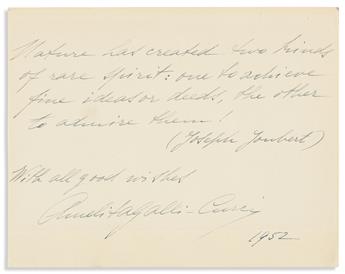 Nature has created two kinds
of rare spirit: one to achieve
fine ideas or deeds, the other
to admire them!
(Joseph Joubert)
With all good wishes
Amelita Galli-Curci
1952